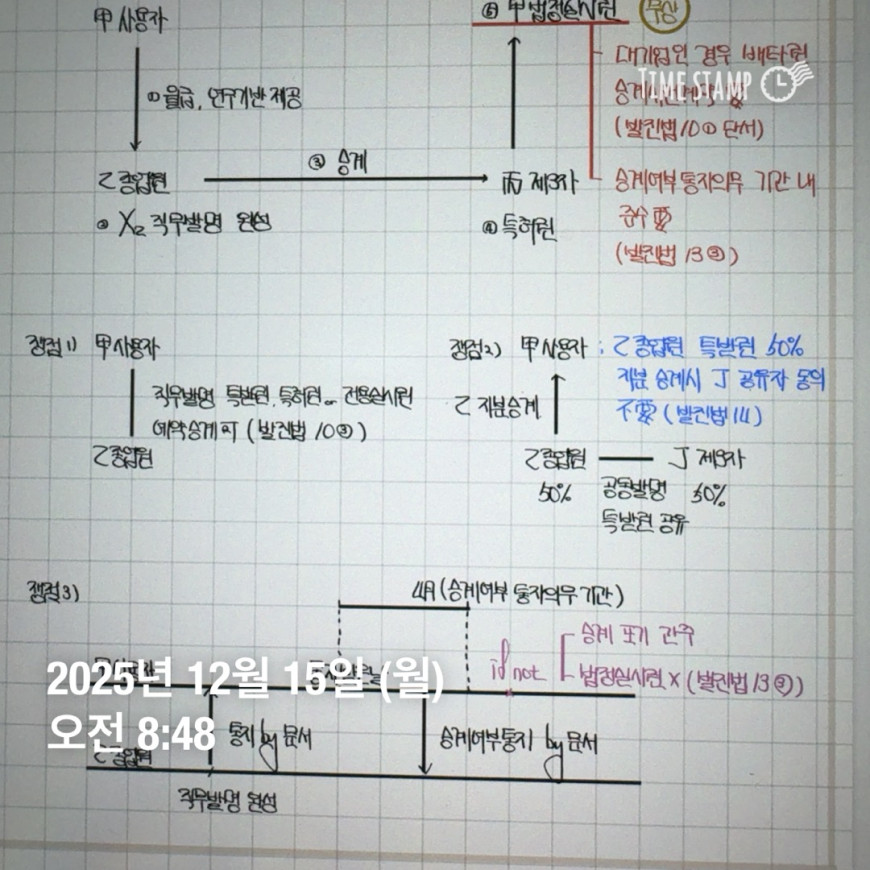 甲 사용자
⑤ 甲 법정실시권 무상
① 월급, 연구기반 제공
대기업인 경우 배타권
TIME STAMP
승계
(발진법 10① 단서)
③ 승계
乙 종업원
丙 제3자
승계여부 통지의무 기간 내
준수 要
② X₂ 직무발명 완성
④ 특허권
(발진법 13③)
쟁점1) 甲 사용자
직무발명 특받권, 특허권 or 전용실시권
예약승계 可 (발진법 10③)
乙 종업원
쟁점2) 甲 사용자 : 乙 종업원 특받권 50%
지분 승계시 J 공유자 동의
不要 (발진법 14)
乙 지분승계
乙 종업원 J 제3자
50% 공동발명 50%
특받권 공유
쟁점3)
4月 (승계여부 통지의무 기간)
if not
승계 포기 간주
법정실시권 X (발진법 13③)
甲 사용자
2025년 12월 15일 (월)
오전 8:48
통지 by 문서
승계여부통지 by 문서
乙 종업원
직무발명 완성